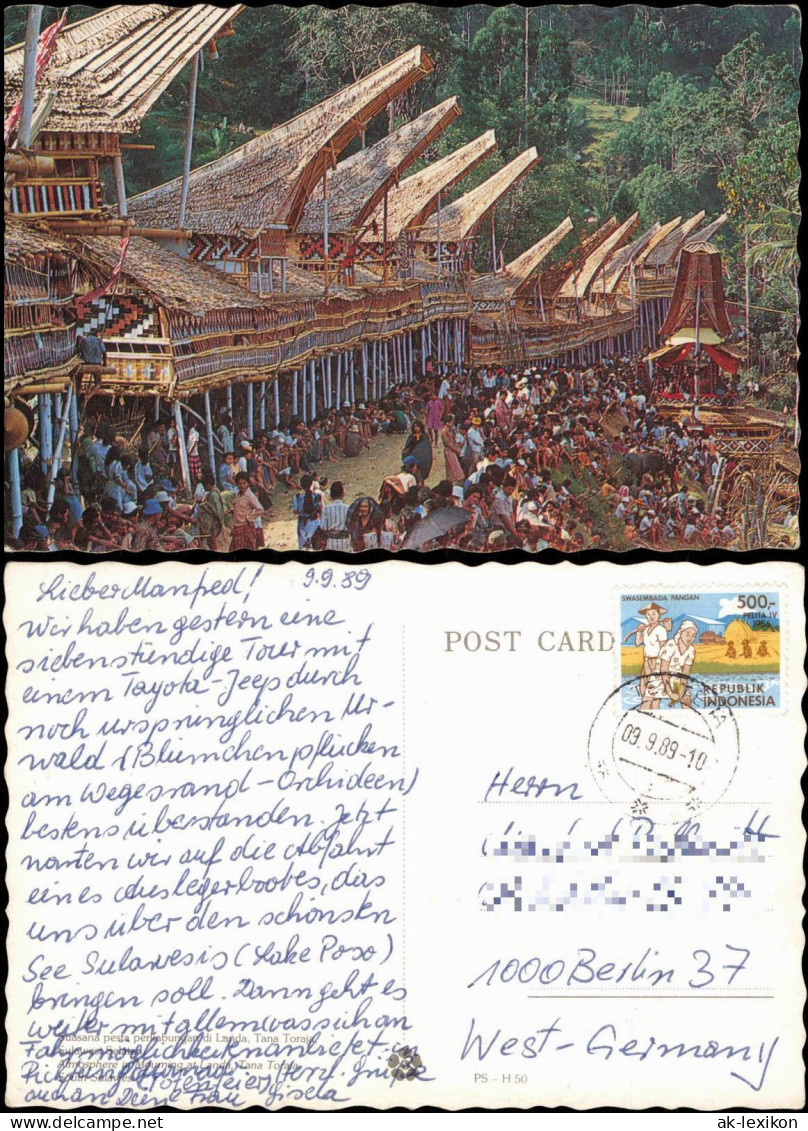 Lieber Manfred! 9.9.89
Wir haben gestern eine
siebenstündige Tour mit
einem Tayota-Jeep durch
noch ursprünglichen Ur-
wald (Blümchenpflücken
am Wegesrand - Orchideen)
bestens überstanden. Jetzt
warten wir auf die Abfahrt
eines Auslegerbootes, das
uns über den schönsten
See Sulawesis (Lake Poso)
bringen soll. Dann geht es
weiter mit allem was sich an
Fahrmöglichkeiten anbietet in
Richtung (Totenfeier) Herzl. Grüße
auch an Deine Frau Gisela
Suasana pesta perkabungan di Landa, Tana Toraja,
Sulawesi Selatan
Atmosphere in mourning at Landa, Tana Toraja,
South Sulawesi
POST CARD
SWASEMBADA PANGAN
500,-
PELITA IV
1986
REPUBLIK
INDONESIA
09.9.89-10
Herrn
1000 Berlin 37
West-Germany
PS - H 50
ak-lexikon